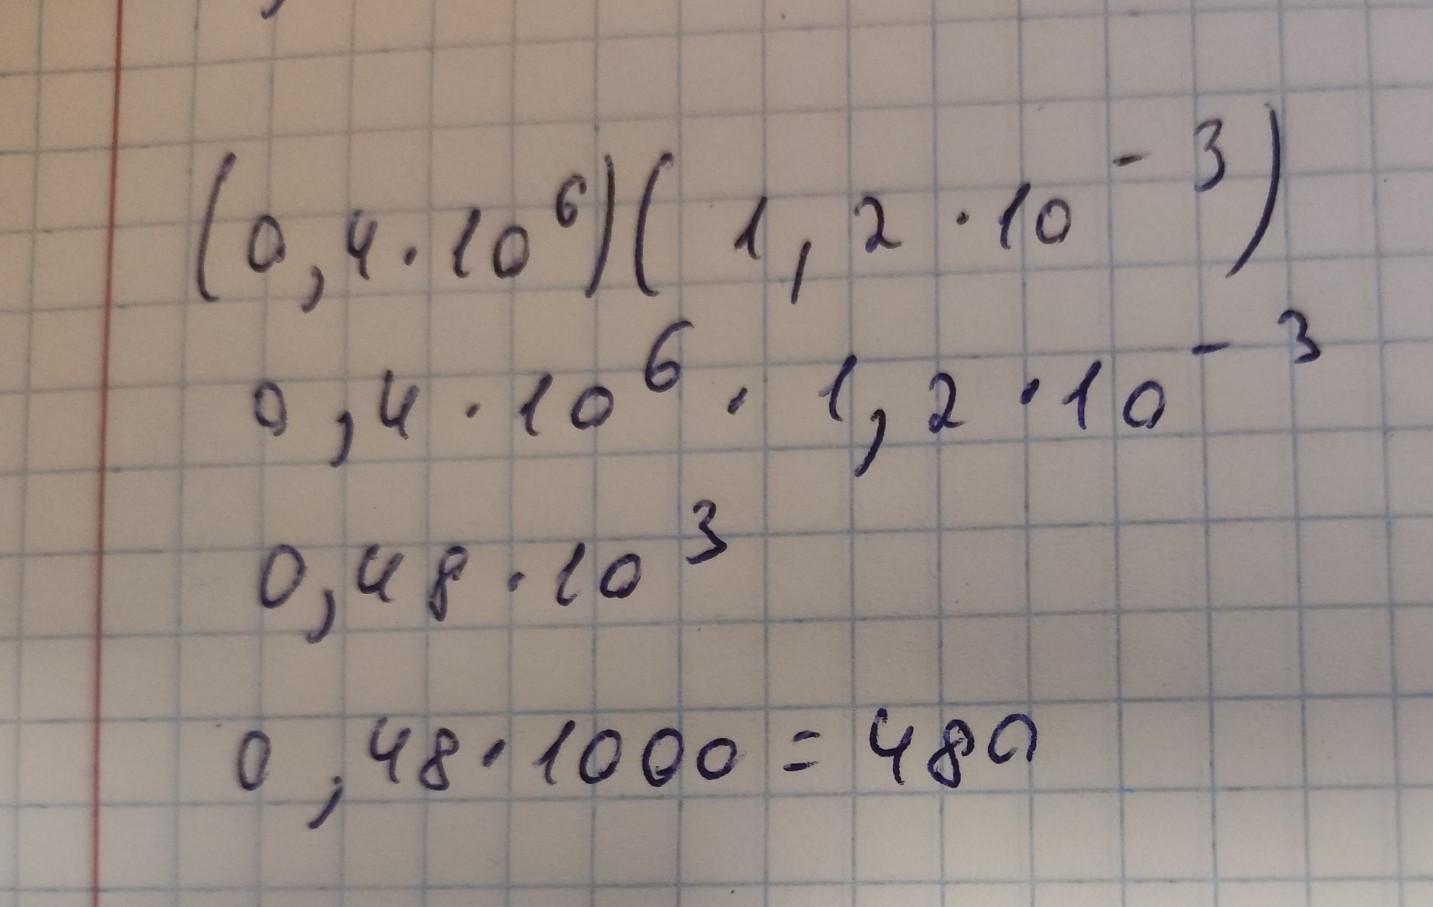 (0,4·10⁶)(1,2·10⁻³)
0,4·10⁶·1,2·10⁻³
0,48·10³
0,48·1000=480